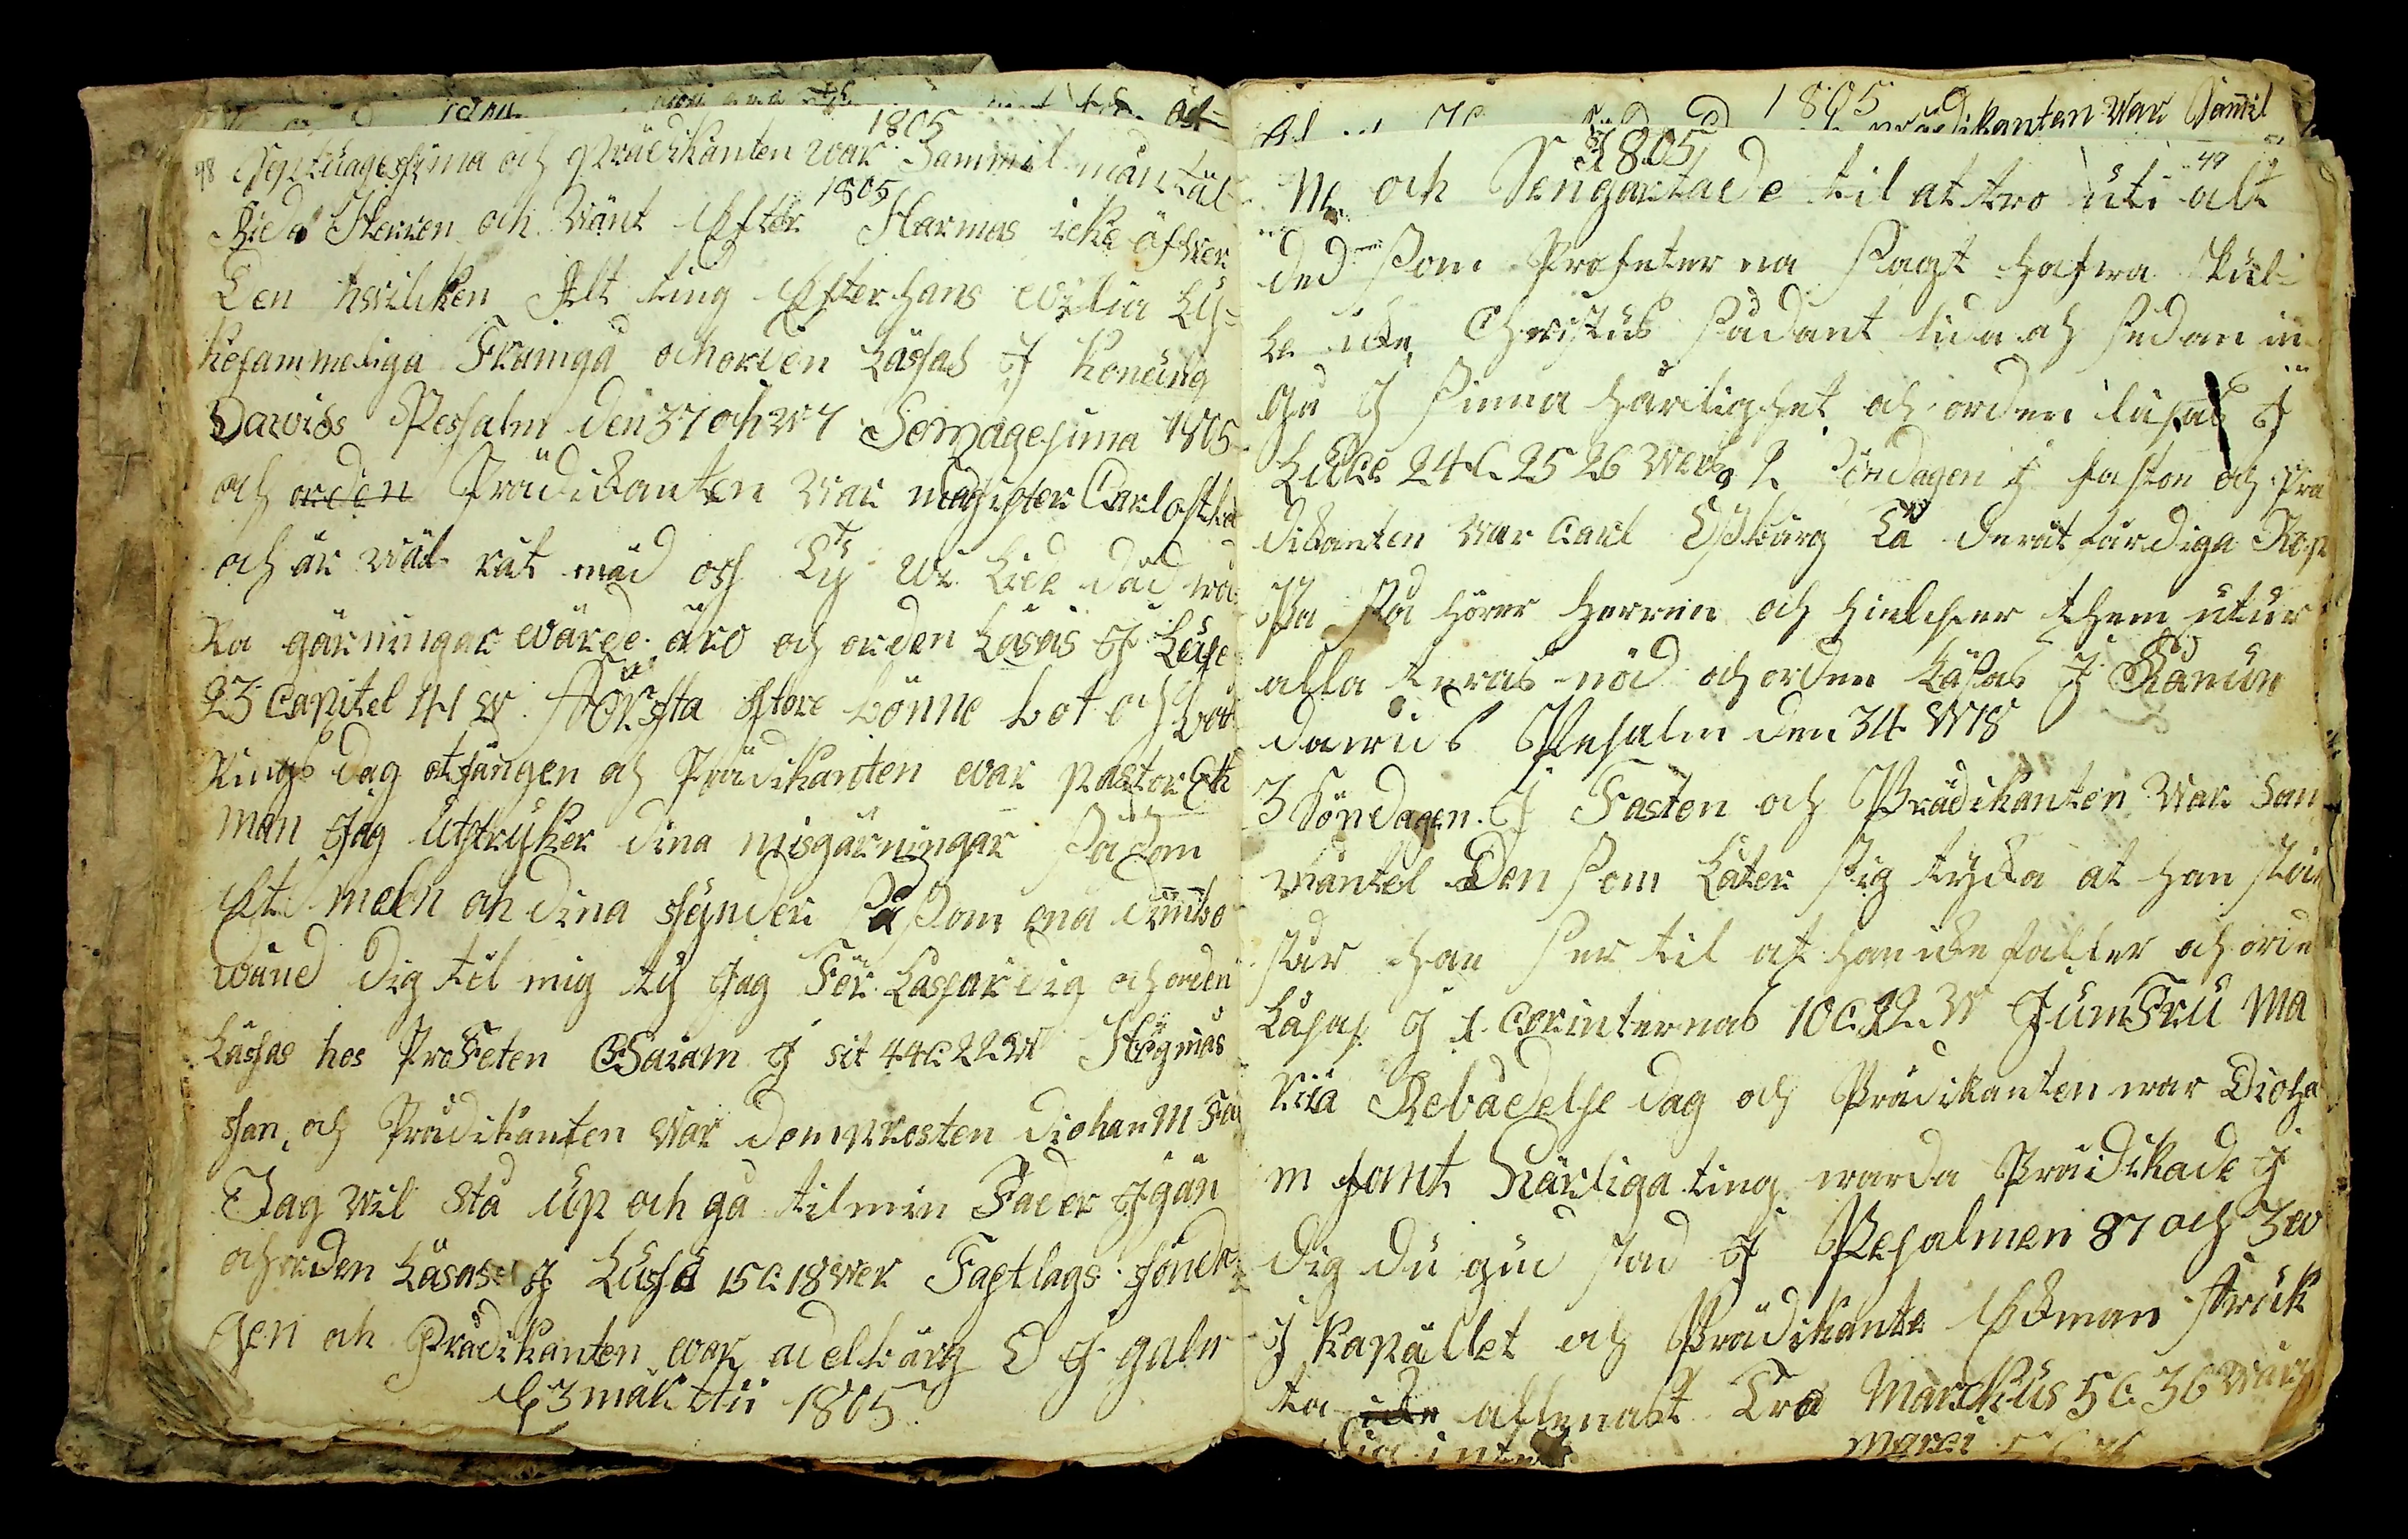 1805
98 Septuagesima och Prädikanten war Sammil mantäl
1805
Bida Herren och Wänt Efter Harmas icke öfwer
Den hwilken Alt ting Efter hans wilia Ly=
kosammeliga Framgå och orden Läsas J Konung
Dawids Pesalm den 37 och W 7 Sexagesima 1805
och orden Prädikanten War magister Carl
och är wäl rät med oss Ty Wi Lide dåd wå
Ra gärningar wärde äro och orden Läsas J Luce
23 Capitel 41 W Försfta store bönne bot och
Kings dag otsången och Prädikanten war pastor Ek
man Jag Utstryker dina misgärningar Såsom
Et moln och dina synder Så Som ena dimbo
Wänd dig til mig ty Jag Förlassar dig och orden
Läsas hos ProFeten Esaiam J sit 44 C 22 W Högmäs
san, och Prädikanten War domprosten diohan M Fa
Jag Wil Stå Up och gå til min Fader Jgän
och orden Läsas J Lussa 15 C: 18 Wer Fastlags sönda
gen och Prädikanten war adelbärg
3 mar tii 1805
1805
1805 Prädikanten War Samil
49
och Sengartade til at tro uti alt
ded Som Profeterna Sagt hafwa Skul
le icke Christus Sådant lida och sedan in
gå J Sinna härlighet och orden läsas J
Luce 24 C. 25 26 Wers 2 Söndagen J faston och Prä
dikanten War Carl Lä de rätfärdiga Rop
Pa Så hörer Herren och hielper them utur
alla teras nöd och orden Läsas J Konun
dawids Pesalm den 34 W 18
3 Söndagen J Fasten och Prädikanten War Sam
mäntel Den Som Låter Sig tycka at han står
står han Ser til at han icke faller och orde
Läsas J 1 Corinternas 10 C. 12. W JumFru Ma
Ria Bebådelse dag och Prädikanten war Dioha
m fant Härliga ting warda Prädikade J
dig du gud stad J Pesalmen 87 och 3 w
J kapället och Prädikante Ekman fruk
ta icke allenast Tro Marckus 5 C. 36 Wärs